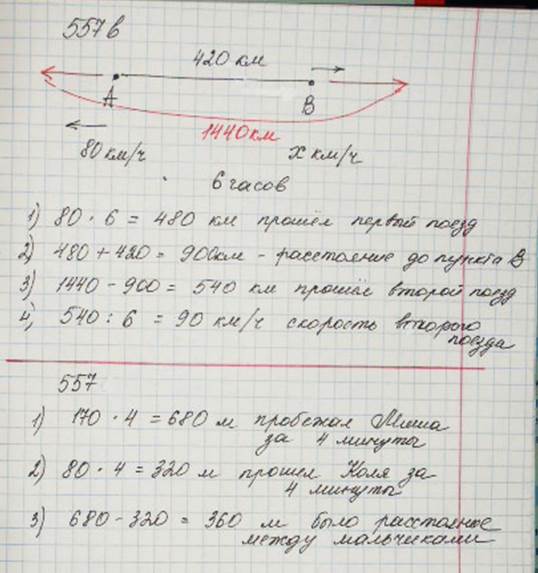 557 в
420 км
А
В
1440 км
80 км/ч
x км/ч
6 часов
1) 80 · 6 = 480 км прошёл первый поезд
2) 480 + 420 = 900км - расстояние до пункта В
3) 1440 - 900 = 540 км прошёл второй поезд
4) 540 : 6 = 90 км/ч скорость второго
поезда
557
1) 170 · 4 = 680 м пробежал Миша
за 4 минуты
2) 80 · 4 = 320 м прошёл Коля за
4 минуты
3) 680 - 320 = 360 м было расстояние
между мальчиками